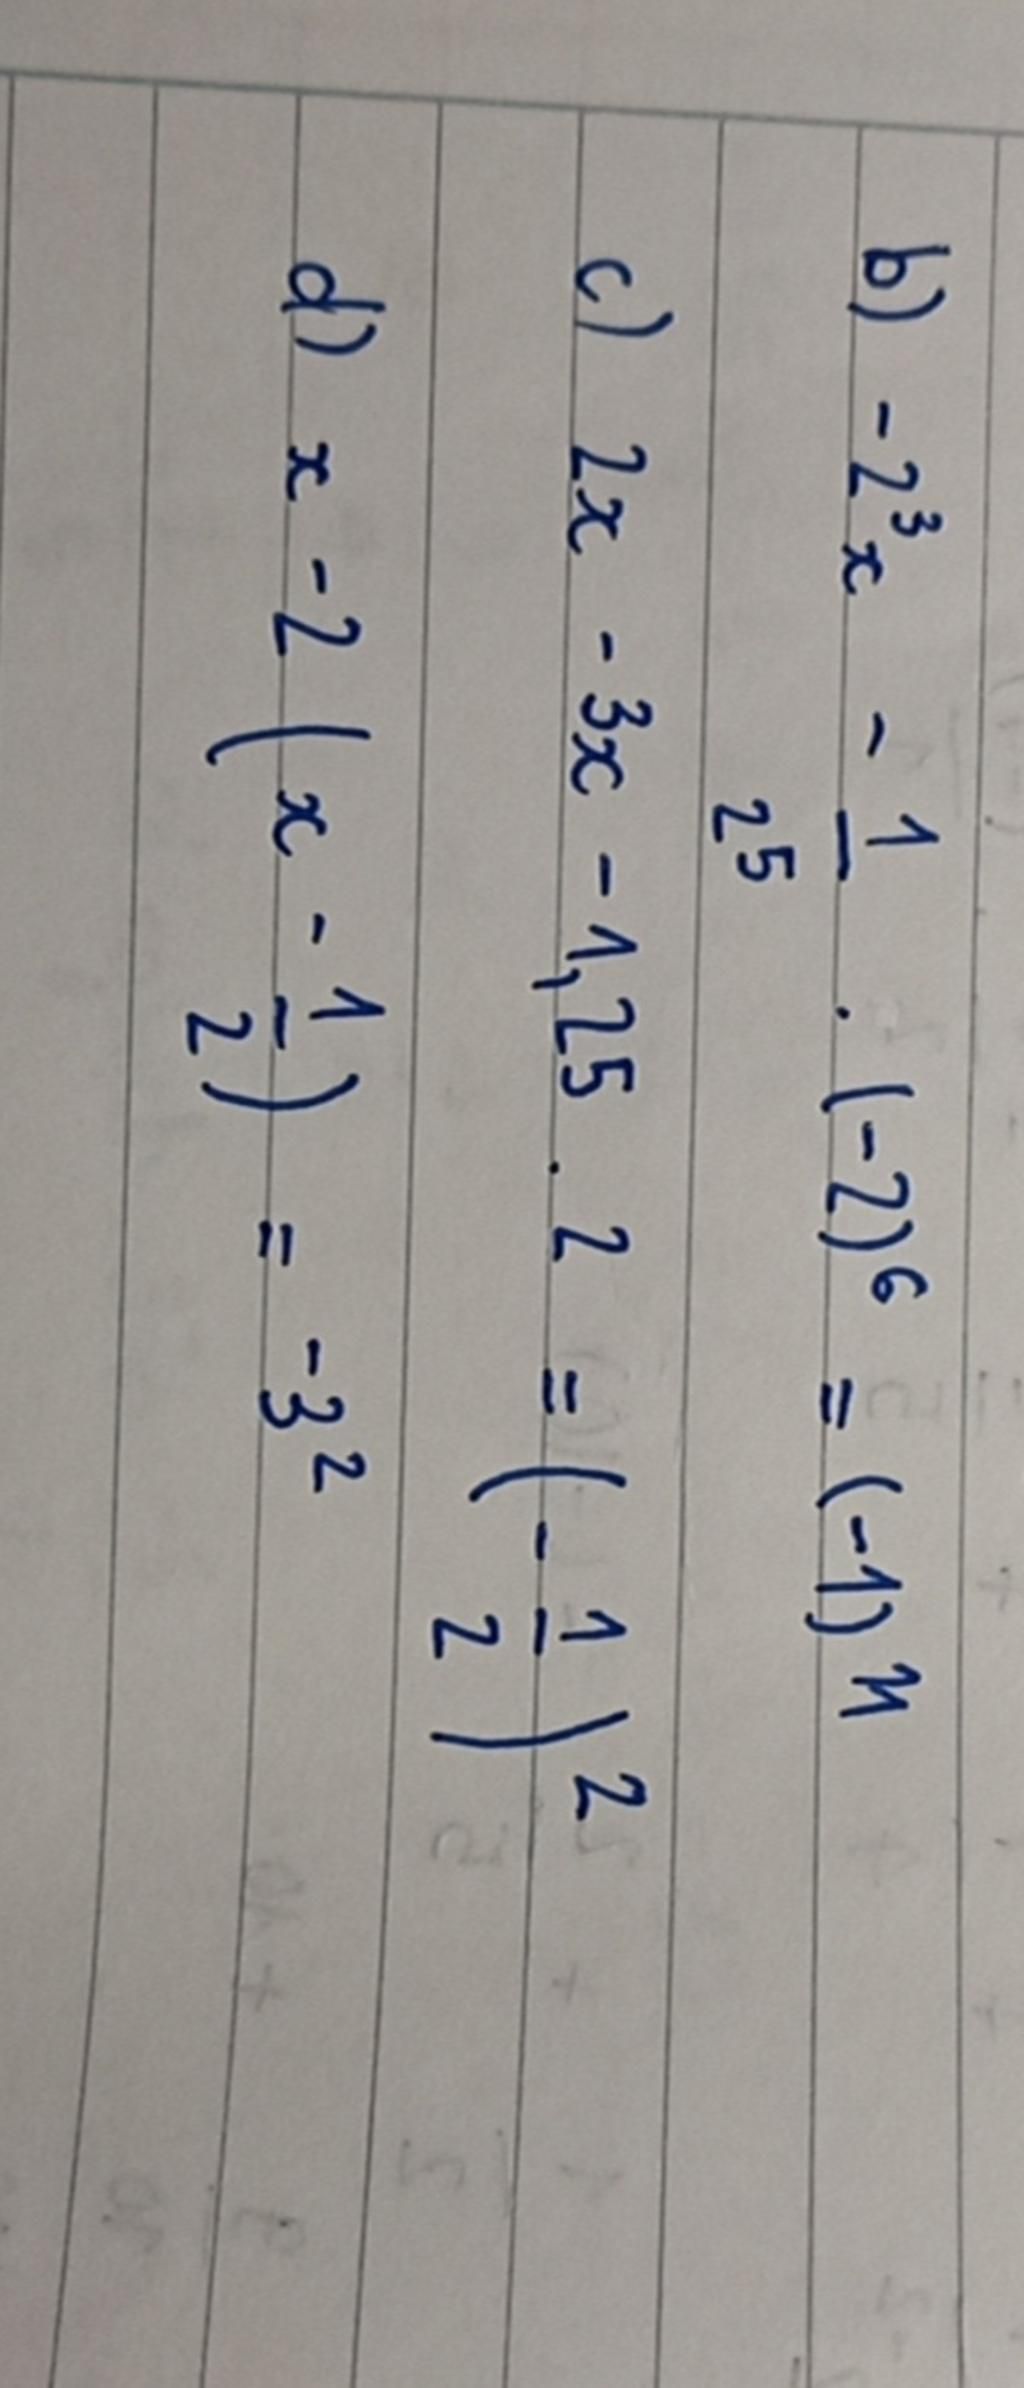 b) -2³x - 1/2⁵ . (-2)⁶ = (-1)ⁿ
c) 2x - 3x - 1,25 . 2 = (- 1/2)²
d) x - 2 (x - 1/2) = -3²